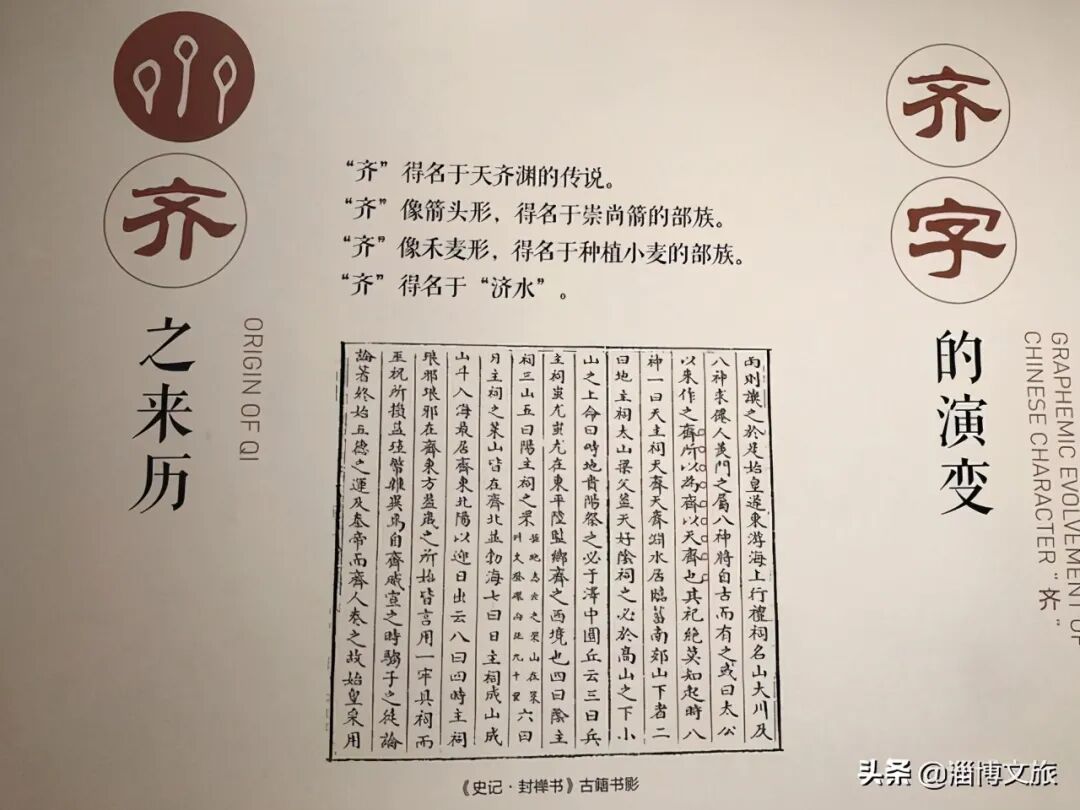 齐
之来历
ORIGIN OF QI
“齐”得名于天齐渊的传说。
“齐”像箭头形，得名于崇尚箭的部族。
“齐”像禾麦形，得名于种植小麦的部族。
“齐”得名于“济水”。
雨則譏之於是始皇遂東游海上行禮祠名山大川及
八神求僊人羨門之屬八神將自古而有之或曰太公
以來作之齊所以為齊以天齊也其祀絕莫知起時八
神一曰天主祠天齊天齊淵水居臨菑南郊山下者二
曰地主祠太山梁父蓋天好陰祠之必於高山之下小
山之上命曰畤地貴陽祭之必于澤中圜丘云三曰兵
主祠蚩尤蚩尤在東平陸監鄉齊之西境也四曰陰主
祠三山五曰陽主祠之罘六曰
月主祠之萊山皆在齊北並勃海七曰日主祠成山成
山斗入海最居齊東北陽以迎日出云八曰四時主祠
琅邪琅邪在齊東方蓋歲之所始皆言用一牢具祠而
巫祝所損益珪幣雜異焉自齊威宣之時騶子之徒論
論著終始五德之運及秦帝而齊人奏之故始皇采用
《史记·封禅书》古籍书影
齐
字
的演变
GRAPHEMIC EVOLVEMENT OF
CHINESE CHARACTER "齐"
头条 @淄博文旅